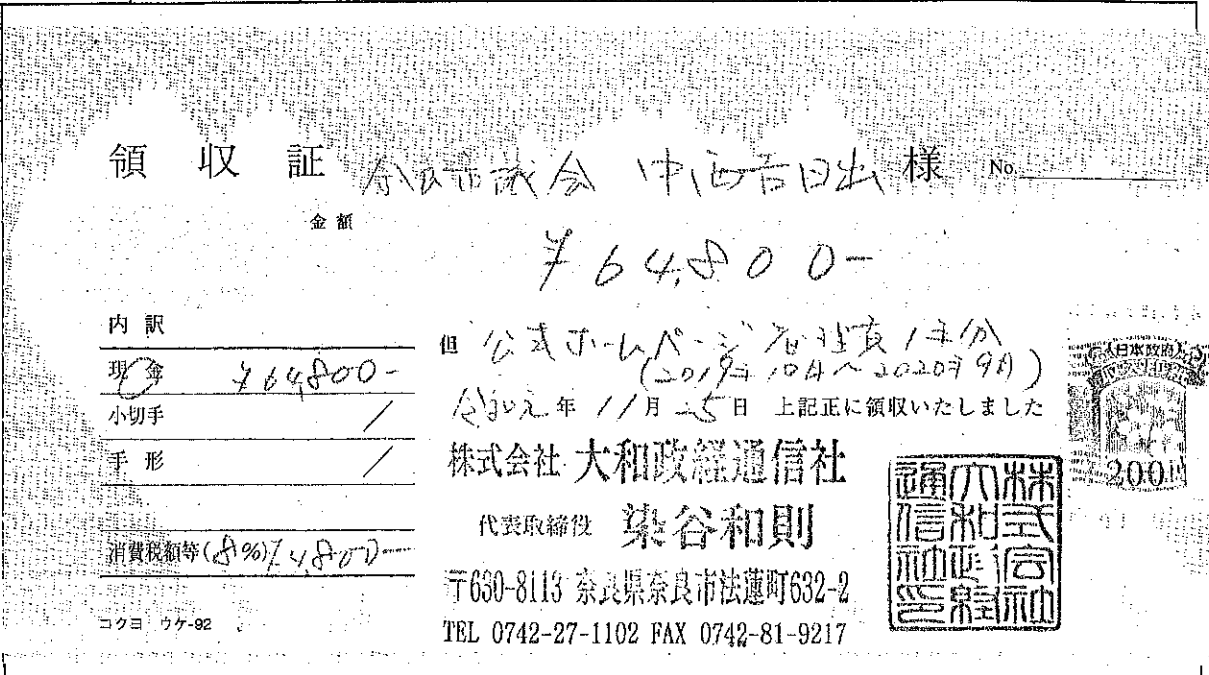 領収証 奈良市議会 中西吉日出 様 No.
金額
¥64,800-
内訳
現金 ¥64,800-
小切手 /
手形 /
消費税額等(8%) ¥4,800-
コクヨ ウケ-92
但 公式ホームページ管理費1年分
(2019年10月~2020年9月)
令和元年11月25日 上記正に領収いたしました
株式会社 大和政経通信社
代表取締役 染谷和則
〒630-8113 奈良県奈良市法蓮町632-2
TEL 0742-27-1102 FAX 0742-81-9217
株式会社大和政経通信社印
日本政府
200円